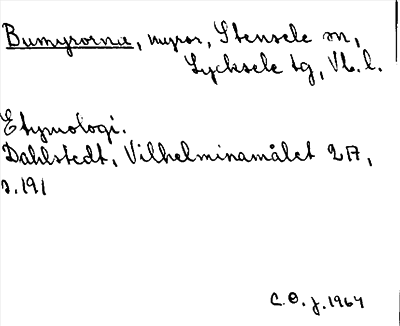 Bumyrorna, myror, Stensele sn,
Lycksele tg, Vb. l.
Etymologi.
Dahlstedt, Vilhelminamålet 2A,
s. 191
C.O. j. 1964